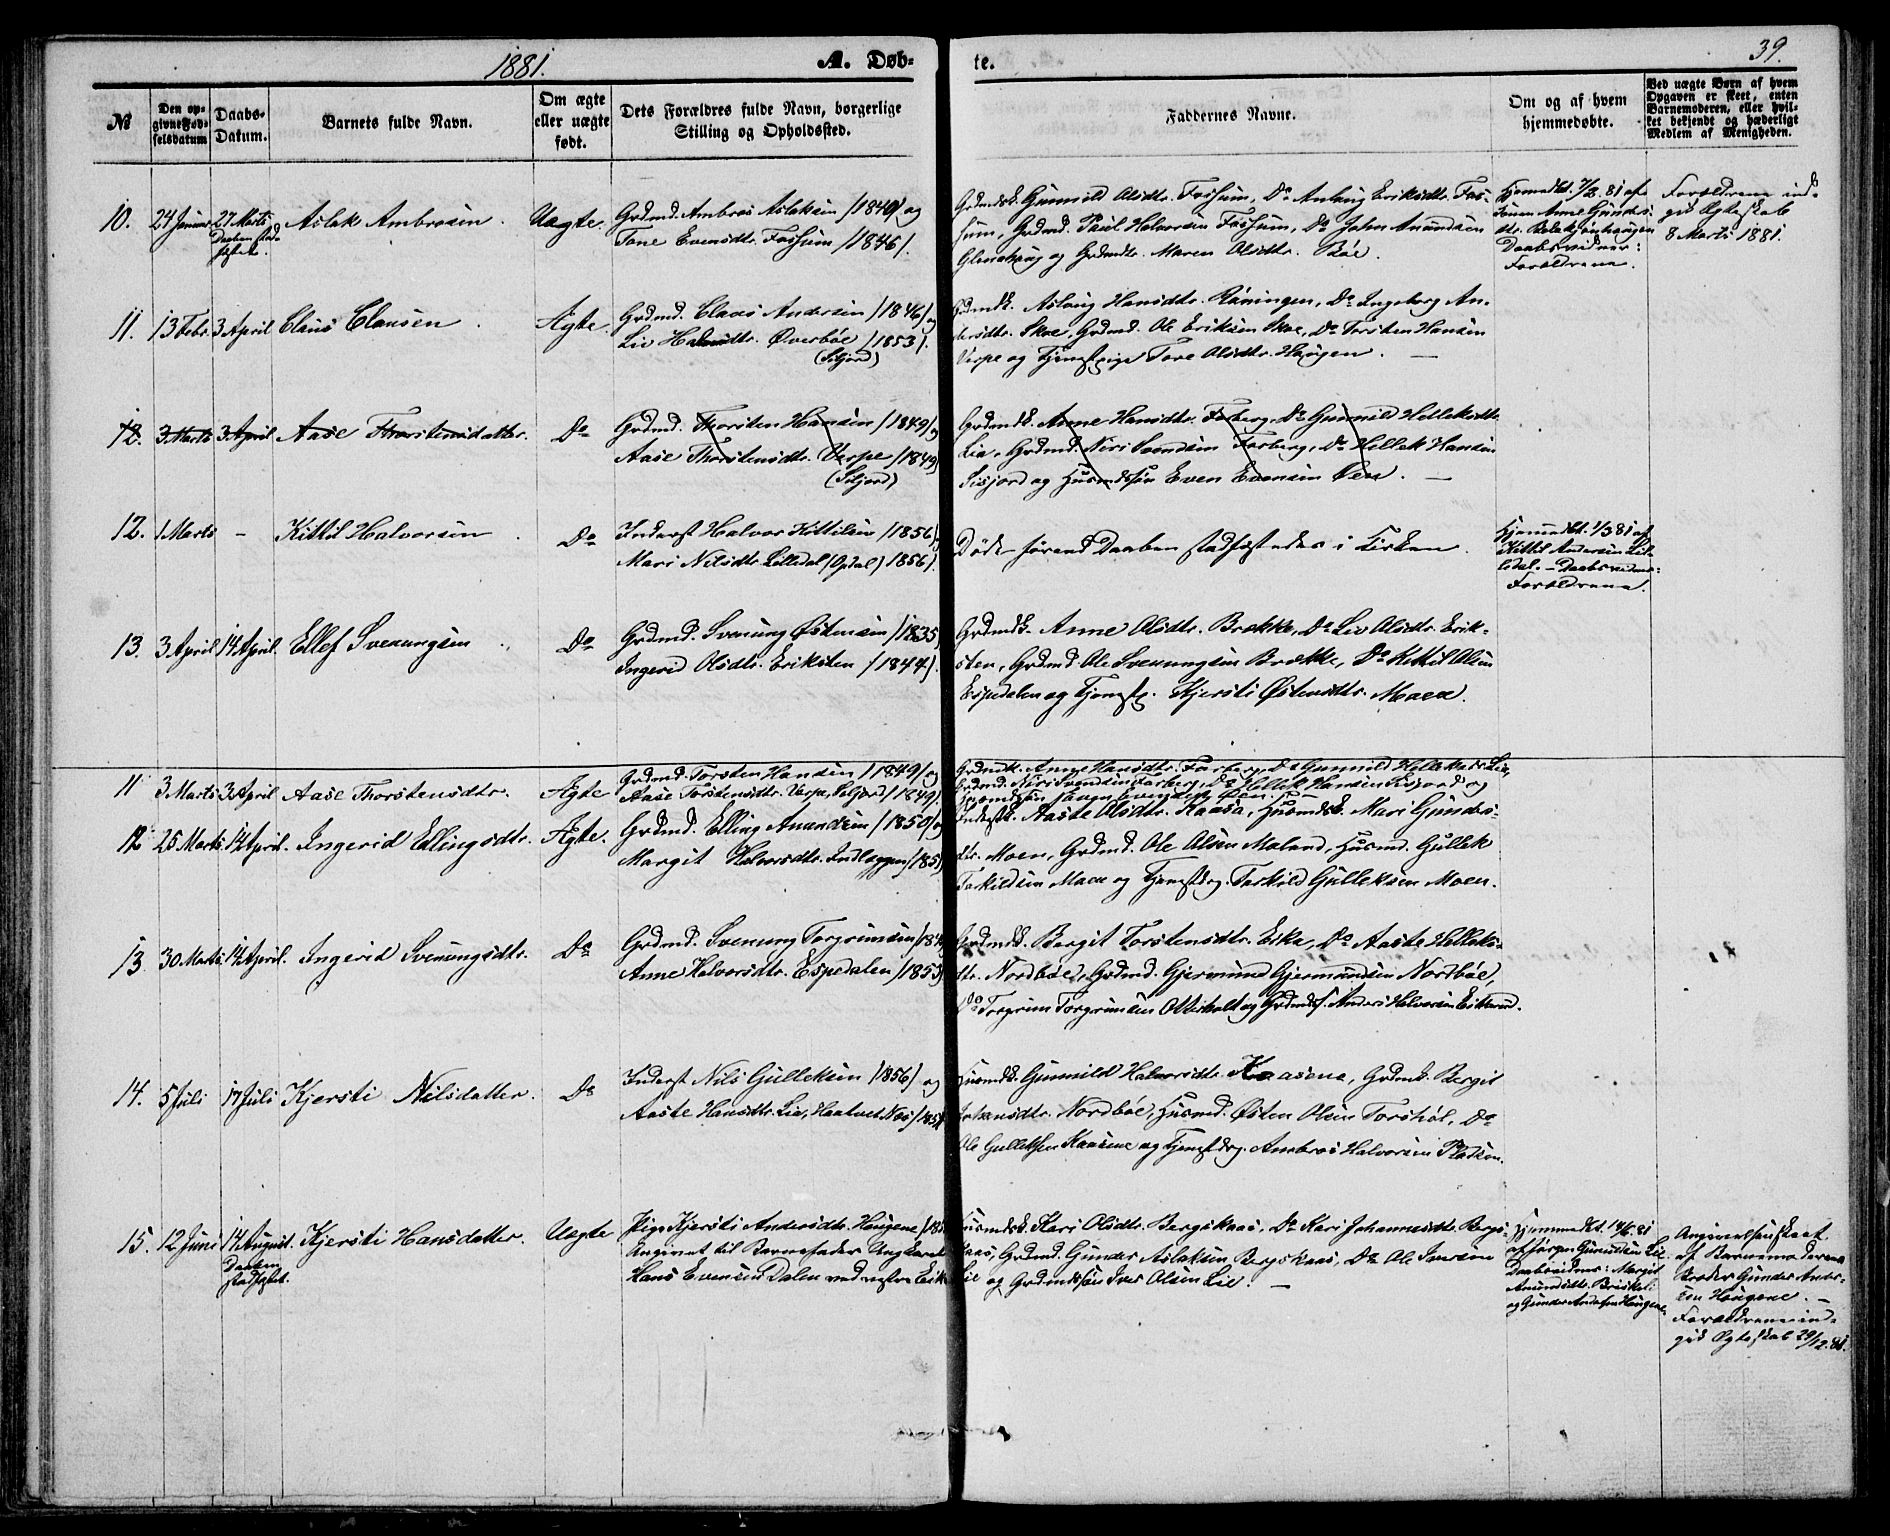 1881.
A. Døb-
te.
39.
№
Den op-
givne Fød-
selsdatum
Daabs-
Datum.
Barnets fulde Navn.
Om ægte
eller uægte
født.
Dets Forældres fulde Navn, borgerlige
Stilling og Opholdssted.
Faddernes Navne.
Om og af hvem
hjemmedøbte.
Ved uægte Børn af hvem
Opgaven er skeet, enten
Barnemoderen, eller hvil-
ket bekjendt og hæderligt
Medlem af Menigheden.
10. 24 Januar 27 Marts Aslak Ambrosen. Uægte. Grdmd. Ambros Aslaksen /1840/ og
Daaben stad-
fæstet.
Tone Evensdtr. Fossum /1846/.
Grdmdsk. Gunnild Olsdtr. Fossum, Do Anlaug Eriksdtr. Fos-
sum, Grdmd. Poul Halvorsen Fossum, Do John Amundsen
og Grdmdtr. Maren Olsdtr. Bøe.
Hjemmedbt. 7/2 81 af
Anne Gunders-
dtr.
Daabsvidner:
Forældrene.
Forældrene ind-
gik Ægteskab
8 Marts 1881.
11. 13 Febr. 3 April Claus Clausen. Ægte. Grdmd. Claus Andersen /1846/ og
Liv Hansdtr. Øverbøe /1853/.
(Siljord)
Grdmdsk. Aslaug Hansdtr. Røningen, Do Ingeborg An-
dersdtr. Skoe, Grdmd. Ole Eriksen Skoe, Do Torsten Hansen
Verpe og Tjenestepige Tore Olsdtr. Haugen. —
12. 3 Marts 3 April Aase Thorstensdatter. Do Grdmd. Thorsten Hansen /1849/ og
Aase Thorstensdtr. Verpe /1849/
(Siljord)
Grdmdsk. Anne Hansdtr. Forberg, Do Gunnild Helleksdtr.
Lie, Grdmd. Niri Svendsen Forberg, Do Hellek Hansen
Sisjord og Husmdssøn Even Evensen Øen. —
12. 1 Marts - Kittil Halvorsen. Do Inderst Halvor Kittilsen /1856/
Mari Nilsdtr. Lilledal (Opdal) 1856/.
Døde førend Daaben stadfæstedes i Kirken.
Hjemmedbt. 1/3 81 af
Kittil Andersen Lil-
ledal. - Daabsvidner:
Forældrene.
13. 3 April 14 April. Ellef Svenungsen. Do Grdmd. Svenung Østensen /1835/
Ingerid Olsdtr. Eriksten /1844/.
Grdmdsk. Anne Olsdtr. Brække, Do Liv Olsdtr. Erik-
sten, Grdmd. Ole Svenungsen Brække, Do Kittil Olsen
Espedalen og Tjenstp. Kjersti Østensdtr. Moen.
11 3 Marts 3 April Aase Thorstensdtr. Ægte Grdmd. Torsten Hansen /1849/ og
Aase Torstensdtr. Verpe, Seljord /1849/.
Grdmdsk. Anne Hansdtr. Forberg, Do Gunnild Helleksdtr. Lie,
Grdmd. Niri Svendsen Forberg, Do Hellek Hansen Sisjord og
Husmdssøn Even Evensen Øen.
12 25 Marts 14 April. Ingerid Ellingsdtr. Ægte. Grdmd. Elling Amundsen /1850/ og
Margit Halvorsdtr. Indlæggen /185
Inderstk. Aaste Olsdtr. Kaasa, Husmdsk. Mari Gunders-
dtr. Moen, Grdmd. Ole Olsen Maland, Husmd. Gullek
Torkildsen Moen og Tjenstdrg. Torkild Gulleksen Moen.
13 30 Marts 14 April. Ingerid Svenungsdtr. Do Grdmd. Svenung Torgrimsen /184
Anne Halvorsdtr. Espedalen /1853/
Grdmdsk. Bergit Torstensdtr. Eika, Do Aaste Helleks-
dtr. Nordbøe, Grdmd. Gjermund Gjermundsen Nordbøe,
Do Torgrim Torgrimsen Otterholt og Grdmdss. Anders Halvorsen
14. 5 Juli 17 Juli Kjersti Nilsdatter. Do Inderst Nils Gulleksen /1856/ og
Aaste Hansdtr. Lie, /185
Husmdsk. Gunnild Halvorsdtr. Kaasene, Grdmdsk. Bergit
Johansdtr. Nordbøe, Husmd. Østen Olsen Torshol, Do
Ole Gulleksen Kaasene og Tjenstdrg. Ambros Halvorsen Pladsen.
15. 12 Juni 14 August. Kjersti Hansdatter. Uægte Pige Kjersti Andersdtr. Haugene /185
Daaben
stadfæstet.
Angivet til Barnefader Ungkarl
Hans Evensen Dalen ved
Husmdsk. Kari Olsdtr. Bergskaas, Do Kari Johannesdtr. Bergs-
kaas, Grdmd. Gunder Aslaksen Bergskaas, Do Ole Iversen
Lie og Grdmdssøn Iver Olsen Lie. —
Hjemmedbt. 14/6 81
af Jørgen Gundersen Lie.
Daabsvidner: Margit
Amundsdtr.
og Gunder Andersen Haugene
Angivelsen skeet
af Barnemoderens
Broder Gunder Ander-
sen Haugene. —
Forældrene ind-
gik Ægteskab 29/12 81.